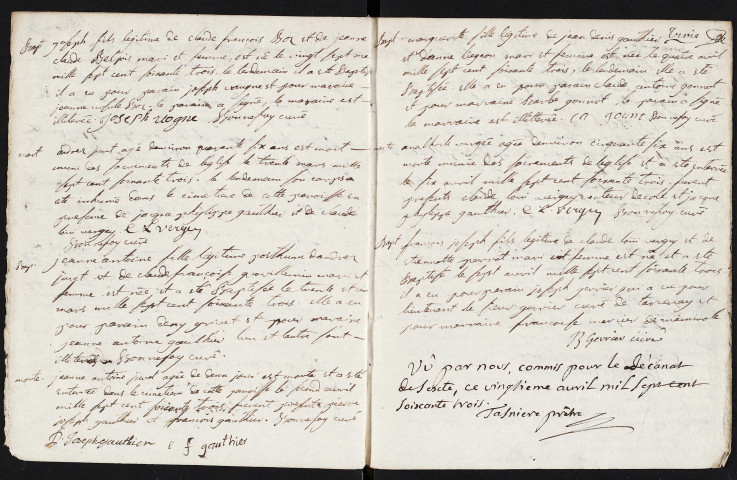 Bapt joseph fils legitime de claude françois Boz et de jeanne
claude mari et femme, est né le vingt sept mars
mille sept cent soixante trois. le lendemain il a eté Baptisé
il a eu pour parain joseph vaugne et pour maraine
jeanne Boz, le parain a signé, la maraine est
illetrée. JOSEPH VOGNE Bonnefoy curé
mort andrez jurt agé denviron quarente six ans est mort
muni des sacrements de leglise le trente mars mille
sept cent soixante trois. le lendemain son corps a
eté inhumé dans le cimetiere de cette paroisse en
presence de jacque phylippe gauthier et de claude
loüi vergey C L vergey
Bonnefoy curé
Bapt jeanne antoine fille legitime posthume dandrez
jurgt et de claude françoise mari et
femme est née, et a eté Baptisée le trente et un
mars mille sept cent soixante trois. elle a eu
pour parain deny et pour maraine
jeanne antoine gauthier lun et lautre sont
illetrés Bonnefoy curé.
morte jeanne antoine jurt agée de deux jours est morte et a eté
enterrée dans le cimetiere de cette paroisse le second avril
mille sept cent soixante trois, furent presents pierre
joseph gauthier et françois gauthier. Bonnefoy curé
P. Joseph gauthier f gauthier
Bapt marguerite fille legitime de jean denis gauthier
et dianne mari et femme est née le quatre avril
mille sept cent soixante trois, le lendemain elle a eté
Baptisée. elle a eu pour parain claude antoine gonnot
et pour marraine barbe gonnot. le parain a signé
la marraine est illetrée. Bonnefoy curé
morte vergée agée denviron cinquante six ans est
morte munie des sacrements de leglise et a eté enterrée
le six avril mille sept cent soixante trois. furent
presents claude loüi vergey recteur decole et jacque
phylippe gauthier. C L vergey Bonnefoy curé
Bapt françois joseph fils legitime de claude loüi vergey et de
mari et femme est né et a eté
Baptisé le sept avril mille sept cent soixante trois
il a eu pour parain joseph qui a eu pour
lieutenant le sieur curé de et
pour marraine françoise mercier de
curé
Vû par nous, commis pour le décanat
de Sexte, ce vingtieme avril mil sept cent
soixante trois.
Tasniere prêtre